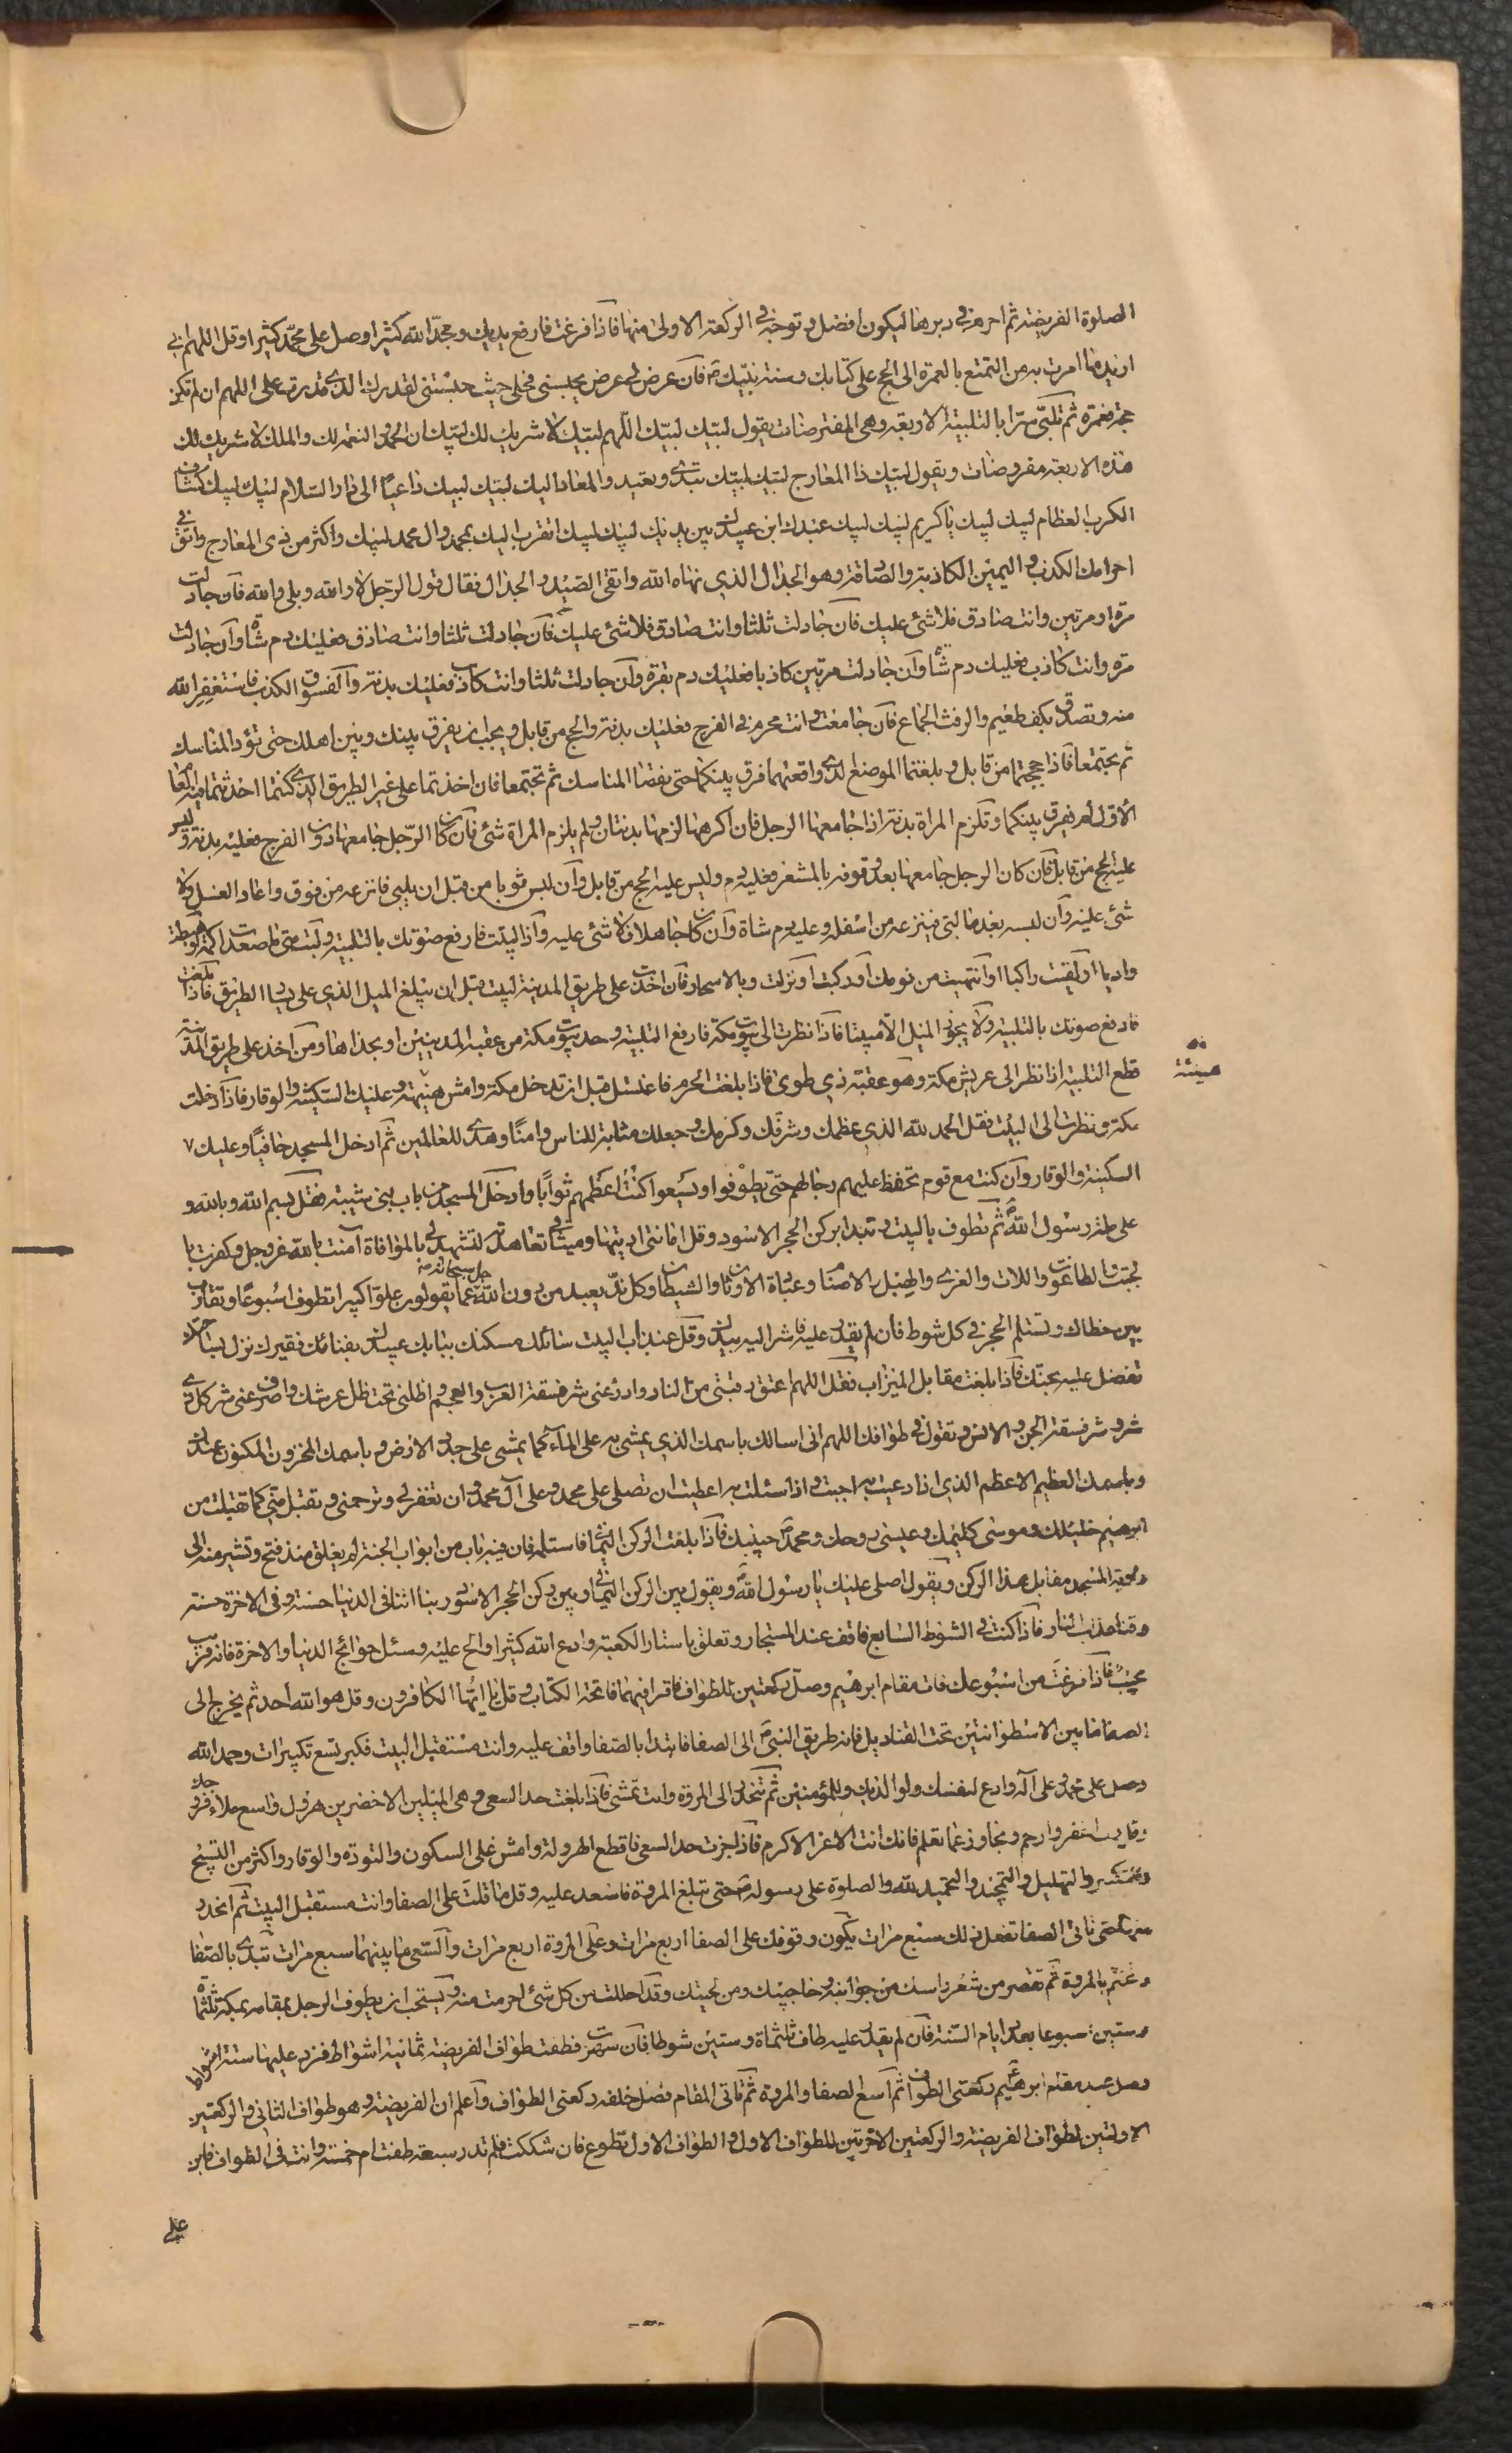 الصلوة الفريضة ثم احرم في دبرها ليكون افضل وتوجه في الركعة الاولى منها فاذا فرغت فارفع يديك ومجد الله كثيرا وصل على محمد كثيرا وقل اللهم اني
اريد ما امرت به من التمتع بالعمرة الى الحج على كتابك وسنة نبيك ص فان عرض لي عرض يحبسني فحلني حيث حبستني لقدرك الذي قدرت علي اللهم ان لم تكن
حجة فعمرة ثم تلبي سرا بالتلبية الاربعة وهي المفترضات يقول لبيك لبيك اللهم لبيك لا شريك لك لبيك ان الحمد والنعمة لك والملك لا شريك لك
هذه الاربعة مفروضات ويقول لبيك ذا المعارج لبيك لبيك تبدئ وتعيد والمعاد اليك لبيك لبيك داعيا الى دار السلام لبيك لبيك كشاف
الكرب العظام لبيك لبيك يا كريم لبيك لبيك عبدك ابن عبديك بين يديك لبيك لبيك اتقرب اليك بمحمد وال محمد لبيك واكثر من ذي المعارج واتق في
احرامك الكذب واليمين الكاذبة والصادقة وهو الجدال الذي نهاه الله واتقى الصيد والجدال فقال قول الرجل لا والله وبلى والله فان جادلت
مرة او مرتين وانت صادق فلا شئ عليك فان جادلت ثلثا وانت صادق فلا شئ عليك فان جادلت ثلثا وانت صادق فعليك دم شاة وان جادلت
مرة وانت كاذب فعليك دم شاة وان جادلت مرتين كاذبا فعليك دم بقرة وان جادلت ثلثا وانت كاذب فعليك بدنة والفسوق الكذب فاستغفر الله
منه وتصدق بكف طعيم والرفث الجماع فان جامعت وانت محرم في الفرج فعليك بدنة والحج من قابل ويجب ان يفرق بينك وبين اهلك حتى تؤد المناسك
ثم يجتمعا فاذا حججتما من قابل وبلغتما الموضع لذي واقعتهما فرق بينكما حتى يفضا المناسك ثم تجتمعا فان اخذتما على غير الطريق الذي كنتما احدثتما فيه العام
الاول لم يفرق بينكما وتلزم المراة بدنة اذا جامعها الرجل فان اكرهها لزمها بدنتان ولم يلزم المراة شئ فان كان الرجل جامعها دون الفرج فعليه بدنة وليس
عليه الحج من قابل فان كان الرجل جامعها بعد وقوفه بالمشعر فعليه دم وليس عليه الحج من قابل وان لبس ثوبا من قبل ان يلبي فانزعه من فوق واعاد الغسل ولا
شئ عليه وان لبسه بعد ما لبى فينزعه من اسفله وعليه دم شاة وان كان جاهلا فلا شئ عليه واذا لبيت فارفع صوتك بالتلبية ولبت متى ما صعدت اكمة او هبطت
واديا او لقيت راكبا او انتهيت من نومك او ركبت او نزلت وبالاسحار فان اخذت على طريق المدينة لبيت قبل ان يبلغ الميل الذي على يسار الطريق فاذا بلغت
فارفع صوتك بالتلبية ولا يجوز الميل الا ميبتا فاذا نظرت الى بيوت مكة فارفع التلبية وحد بيوت مكة من عقبة المدينيين او بحذاها ومن اخذ على طريق المدينة
قطع التلبية اذا نظر الى عريش مكة وهو عقبة ذي طوى فاذا بلغت الحرم فاغتسل قبل ان تدخل مكة وامش هنيهة وعليك السكينة والوقار فاذا دخلت
هينئة
مكة ونظرت الى البيت فقل الحمد لله الذي عظمك وشرفك وكرمك وجعلك مثابة للناس وامنا وهدى للعالمين ثم ادخل المسجد حافيا وعليك ٧
السكينة والوقار وان كنت مع قوم تحفظ عليهم رحالهم حتى يطوفوا ويسعوا كنت اعظمهم ثوابا وادخل المسجد من باب بني شيبة فقل بسم الله وبالله و
على ملة رسول الله ص ثم تطوف بالبيت وتبدا بركن الحجر الاسود وقل امانتي اديتها وميثاقي تعاهدته لتشهد لي بالموافاة آمنت بالله عز وجل وكفرت با
لجبت والطاغوت واللات والعزى والهبل والاصنام وعبادة الاوثان والشيطان وكل ند يعبد من دون الله جل سبحانه عما يقولون علوا كبيرا تطوف اسبوعا وتقارب
بين خطاك وتستلم الحجر في كل شوط فان لم يقدر عليه فاشر اليه بيدك وقل عند باب البيت سائلك مسكنك ببابك عبيدك بفنائك فقيرك نزل بساحتك
تفضل عليه بجنتك فاذا بلغت مقابل الميزاب فقل اللهم اعتق رقبتي من النار وادرء عني شر فسقة العرب والعجم واظلني تحت ظل عرشك واصرف عني شر كل ذي
شر وشر فسقة الجن والانس وتقول في طوافك اللهم اني اسالك باسمك الذي يمشي به على الماء كما يمشي على جدد الارض وباسمك المخزون المكنون عندك
وباسمك العظيم الاعظم الذي اذا دعيت به اجبت واذا سئلت به اعطيت ان تصلي على محمد وعلى آل محمد وان تغفر لي وترحمني وتقبل مني كما تقبلت من
ابرهيم خليلك وموسى كليمك وعيسى روحك ومحمد ص حبيبك فاذا بلغت الركن اليماني فاستلمه فان فيه باب من ابواب الجنة لم يغلق منذ فتح وتشير منه الى
زاوية المسجد مقابل هذا الركن ويقول اصلي عليك يا رسول الله ويقول بين الركن اليماني وبين ركن الحجر الاسود ربنا اتنا في الدنيا حسنة وفي الاخرة حسنة
وقنا عذاب النار فاذا كنت في الشوط السابع فاقف عند المستجار وتعلق باستار الكعبة وادع الله كثيرا والح عليه وسئل حوائج الدنيا والاخرة فانه قريب
مجيب فاذا فرغت من اسبوعك فات مقام ابرهيم وصل ركعتين للطواف فاقرا فيهما فاتحة الكتاب وقل يا ايها الكافرون وقل هو الله احد ثم يخرج الى
الصفا ما بين الاسطوانتين تحت القناديل فانه طريق النبي ص الى الصفا فابتدا بالصفا واقف عليه وانت مستقبل البيت فكبر تسع تكبيرات وحمد الله
وصل على محمد وعلى آله وادع لنفسك ولوالديك وللمؤمنين ثم تنحدر الى المروة وانت تمشي فاذا بلغت حد السعي وهي الميلين الاخضرين هرول واسع ملاء فروجك
وقل رب اغفر وارحم وتجاوز عما تعلم فانك انت الاعز الاكرم فاذا جزت حد السعي فاقطع الهرولة وامش على السكون والتودة والوقار واكثر من التسبيح
والتكبير والتهليل والتمجيد والتحميد لله والصلوة على رسوله ص حتى تبلغ المروة فاصعد عليه وقل ما قلت على الصفا وانت مستقبل البيت ثم انحدر
منه حتى تاتى الصفا تفعل ذلك سبع مرات يكون وقوفك على الصفا اربع مرات وعلى المروة اربع مرات والسعي ما بينهما سبع مرات تبدئ بالصفا
وتختم بالمروة ثم تقصر من شعر راسك من جوانبه وحاجبيك ومن لحيتك وقد احللت من كل شئ احرمت منه ويستحب ان يطوف الرجل بمقامه بمكة ثلثمائة
وستين اسبوعا بعدد ايام السنة فان لم يقدر عليه طاف ثلثمائة وستين شوطا فان سهوت فطفت طواف الفريضة ثمانية اشواط فزد عليها ستة اشواط
وصل عند مقام ابرهيم ركعتي الطواف ثم آسع الصفا والمروة ثم تاتى المقام فصل خلفه ركعتي الطواف واعلم ان الفريضة هو طواف الثاني والركعتين
الاولتين لطواف الفريضة والركعتين الاخرتين للطواف الاول والطواف الاول تطوع فان شككت فلم تدر سبعة طفت ام خمسة وانت في الطواف فابن
على